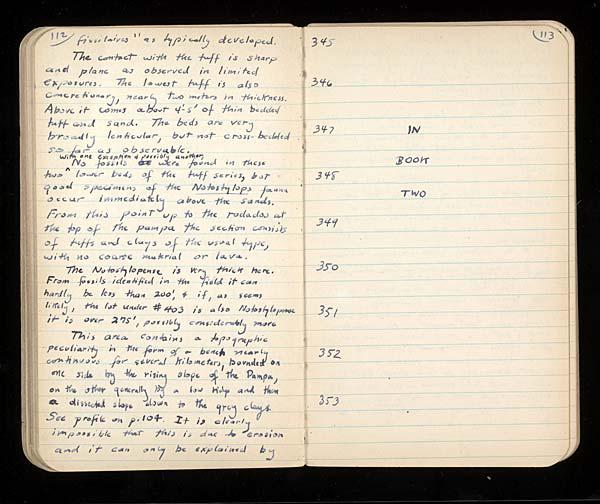 112
fissilaires" as typically developed.
The contact with the tuff is sharp
and plane as observed in limited
exposures. The lowest tuff is also
concretionary, nearly two meters in thickness.
Above it comes about 4-5' of thin bedded
tuff and sand. The beds are very
broadly lenticular, but not cross-bedded
so far as observable.
with one exception & possibly another,
No fossils were found in these
two ^ lower beds of the tuff series, but
good specimens of the Notostylops fauna
occur immediately above the sands.
From this point up to the rodados at
the top of the pampa the section consists
of tuffs and clays of the usual type,
with no coarse material or lava.
The Notostylopense is very thick here.
From fossils identified in the field it can
hardly be less than 200', & if, as seems
likely, the lot under #403 is also Notostylopense
it is over 275', possibly considerably more
This area contains a topographic
peculiarity in the form of a bench nearly
continuous for several kilometers, bounded on
one side by the rising slope of the Pampa,
on the other generally by a low ridge and then
a dissected slope down to the grey clays
See profile on p.104. It is clearly
impossible that this is due to erosion
and it can only be explained by
113
345
346
347 IN
BOOK
348
TWO
349
350
351
352
353